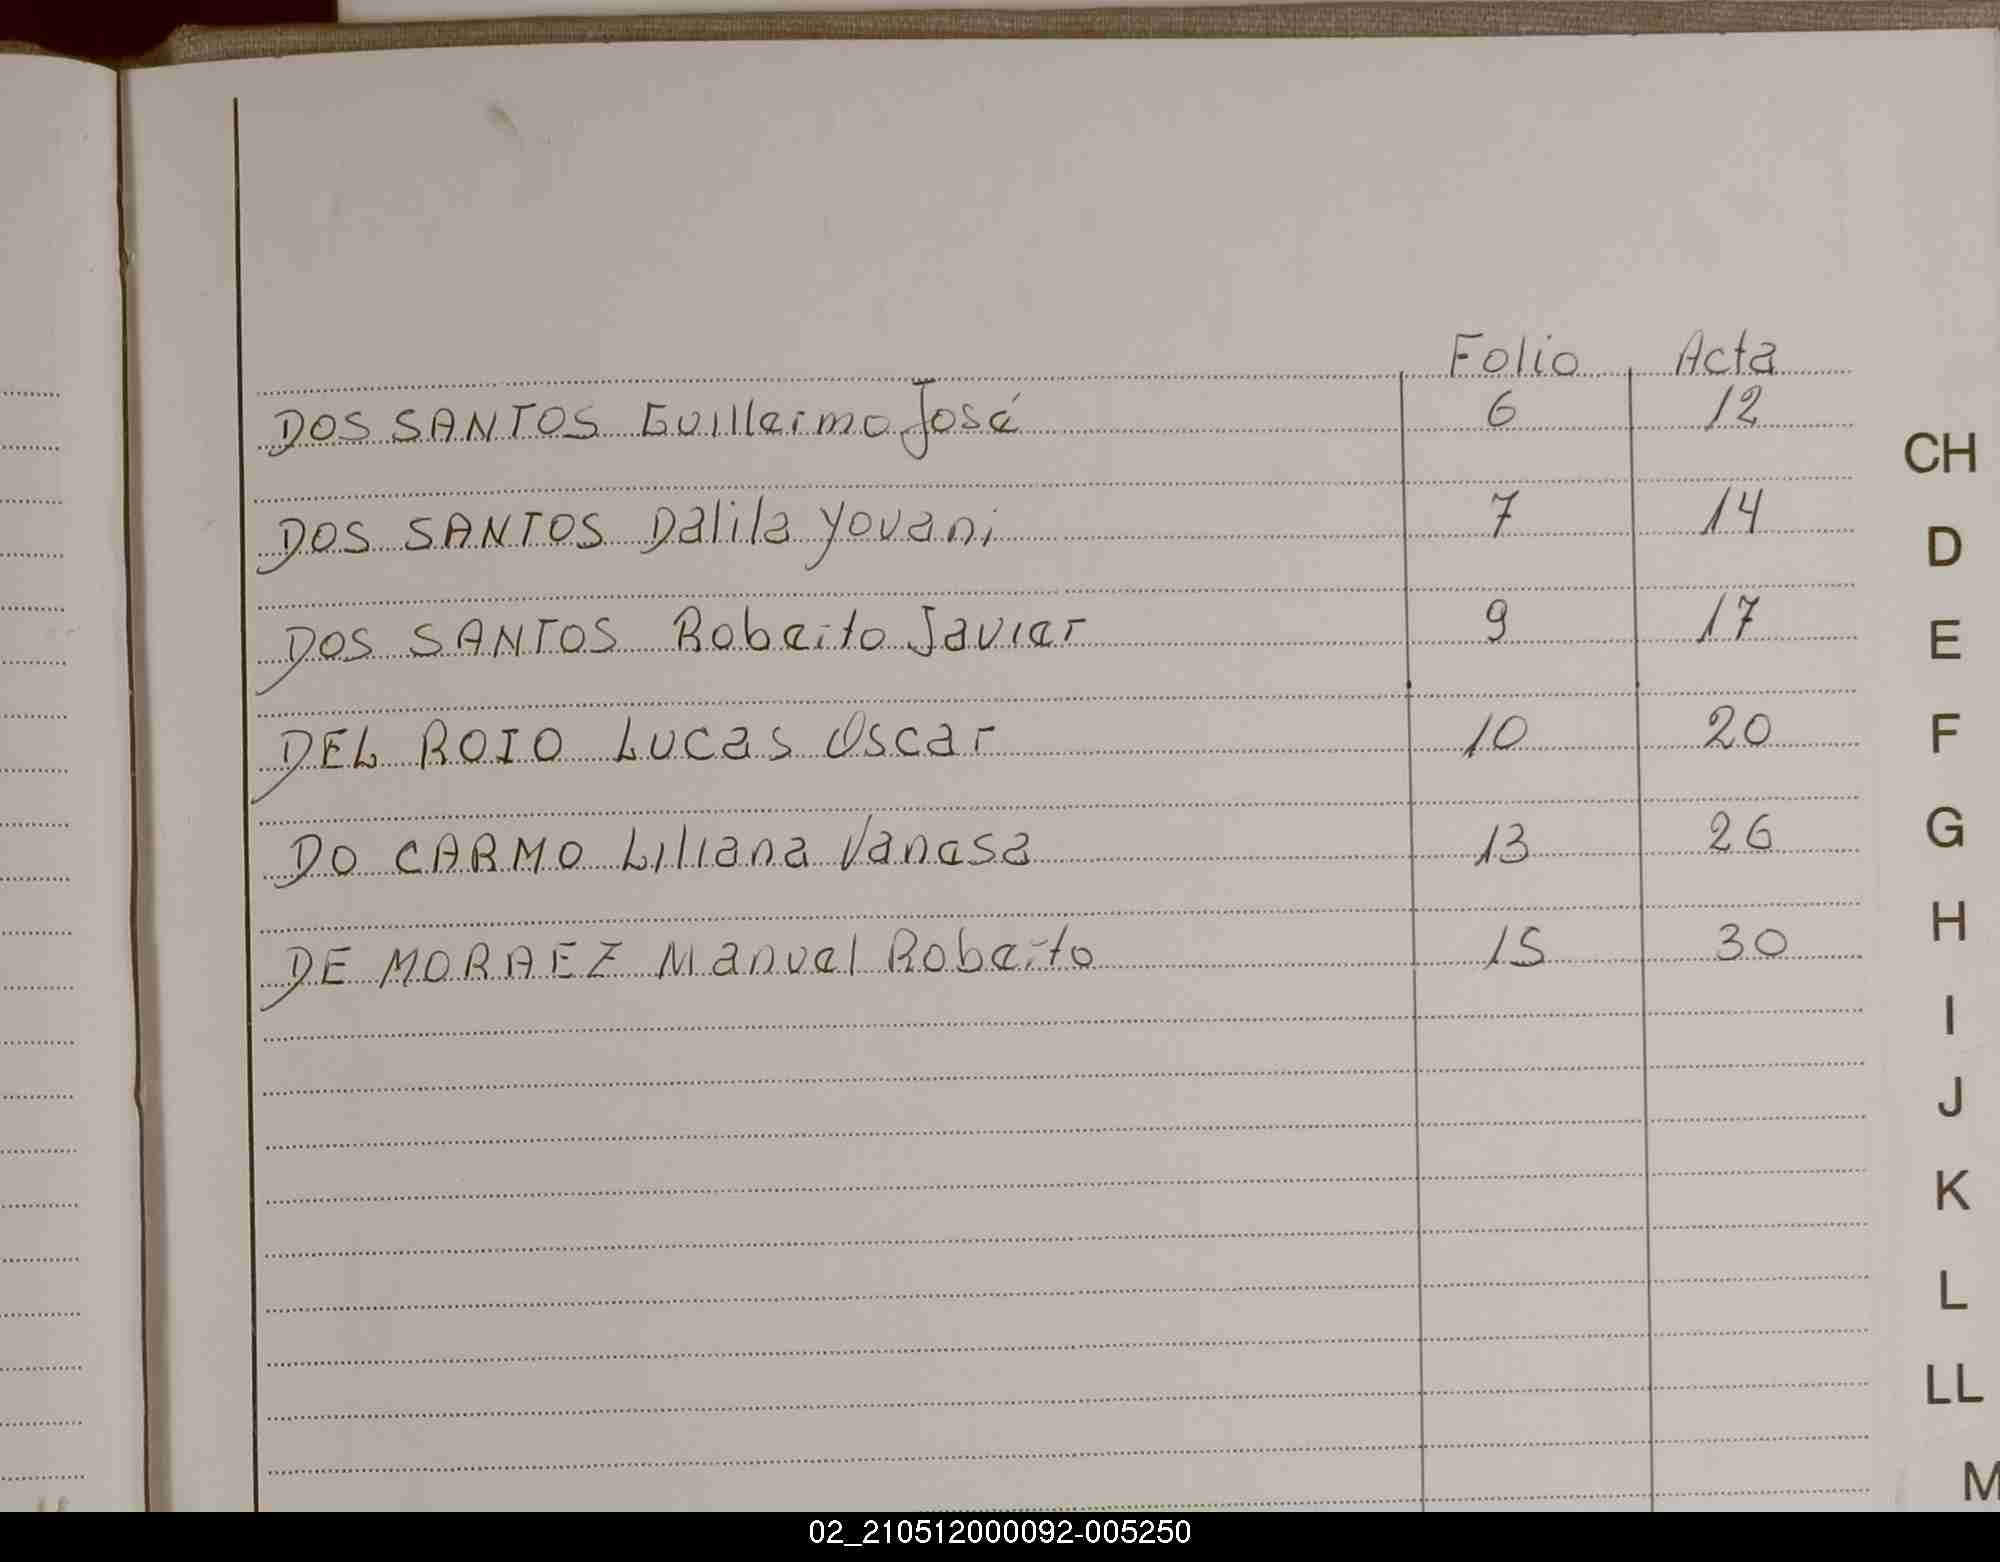 Folio Acta
DOS SANTOS Guillermo José 6 12
DOS SANTOS Dalila Yovani 7 14
DOS SANTOS Roberto Javier 9 17
DEL ROIO Lucas Oscar 10 20
DO CARMO Liliana Vanesa 13 26
DE MORAEZ Manuel Roberto 15 30
CH
D
E
F
G
H
I
J
K
L
LL
M
02_210512000092-005250